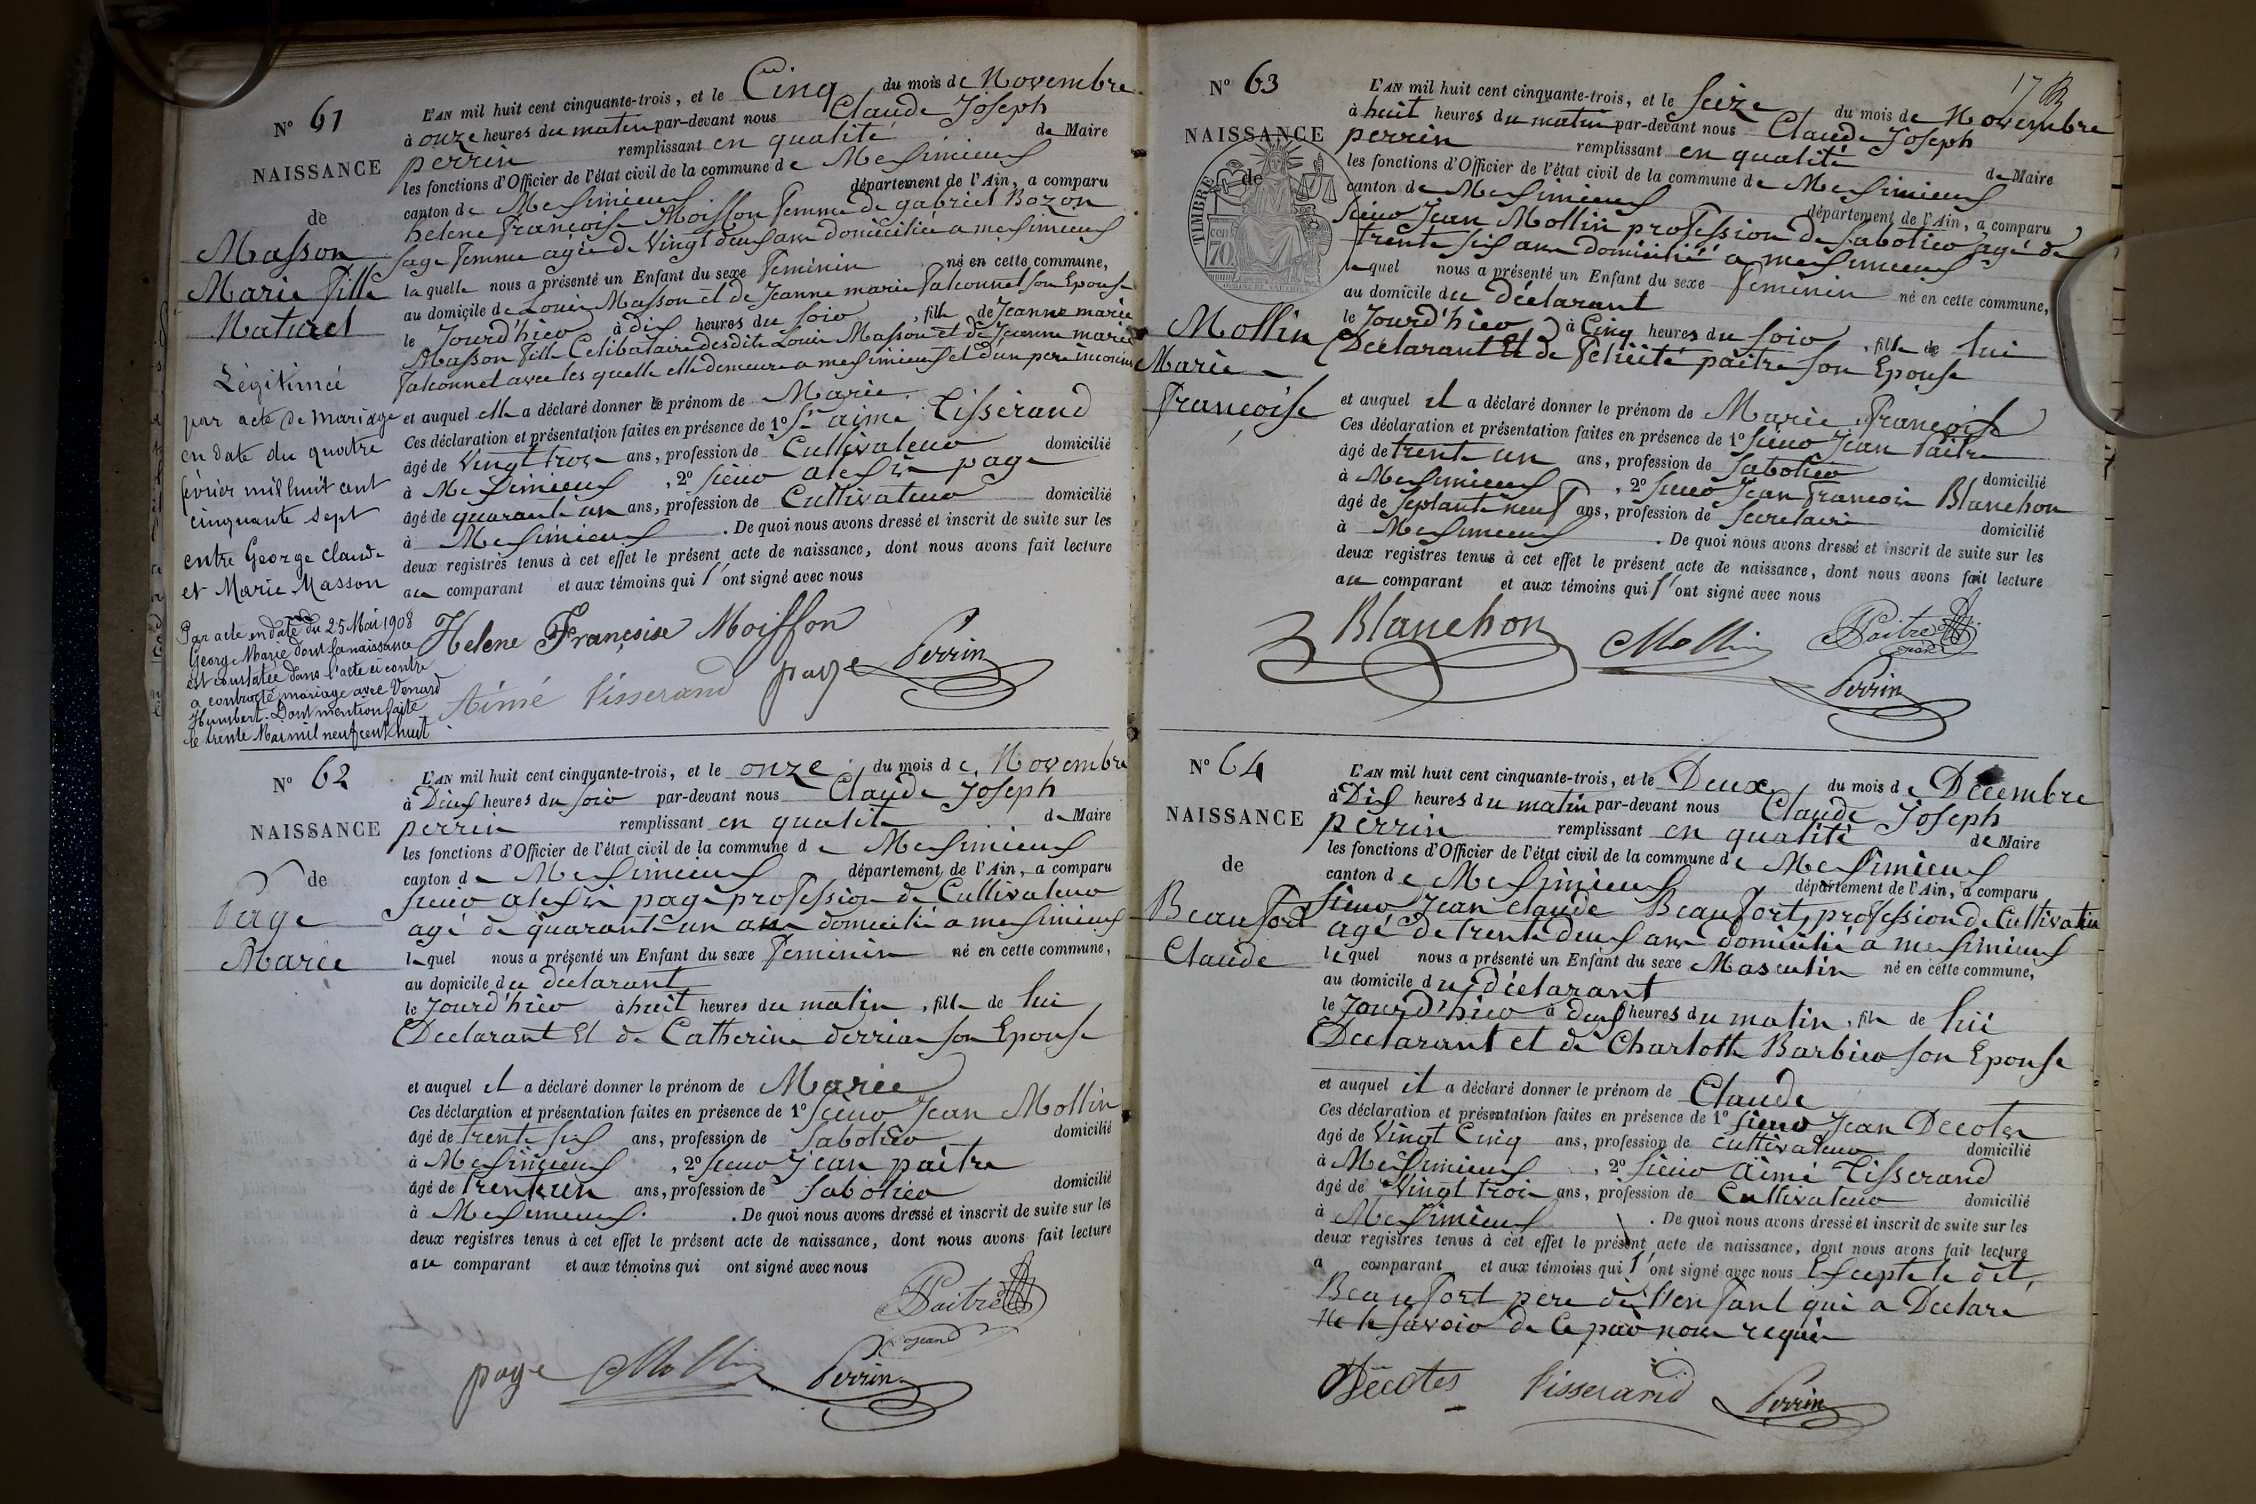 N° 61
NAISSANCE
de
Masson
Marie fille
Naturel
Légitimée
par acte de mariage
en date du quatre
février mil huit cent
cinquante sept
entre George Claude
et Marie Masson
Par acte en date du 25 Mai 1908
George Marie dont la naissance
est constatée dans l'acte ci contre
a contracté mariage avec Venard
Humbert. Dont mention faite
le trente Mai mil neuf cent huit
L'AN mil huit cent cinquante-trois, et le Cinq du mois de Novembre
à onze heures du matin par-devant nous Claude Joseph
perrin remplissant en qualité de Maire
les fonctions d'Officier de l'état civil de la commune de Mesimieux
canton de Mesimieux département de l'Ain, a comparu
helene françoise Moisson femme de gabriel Bozon
sage femme agée de Vingt deux ans domiciliée a mesimieux
la quelle nous a présenté un Enfant du sexe feminin né en cette commune,
au domicile de Louis Masson et de Jeanne marie falconnet son Epouse
le Jourd'hieo à dix heures du soio, fille de Jeanne marie
Masson fille Celibataire desdits Louis Masson et de Jeanne marie
falconnet avec les quelle elle demeure a mesimieux et d'un pere inconnu
et auquel elle a déclaré donner le prénom de Marie
Ces déclaration et présentation faites en présence de 1° Sr aimé Tisserand
âgé de Vingt trois ans, profession de Cultivateuo domicilié
à Mesimieux, 2° sieuo alexis page
âgé de quarante un ans, profession de Cultivateuo domicilié
à Mesimieux. De quoi nous avons dressé et inscrit de suite sur les
deux registres tenus à cet effet le présent acte de naissance, dont nous avons fait lecture
au comparant et aux témoins qui l'ont signé avec nous
Helene Françoise Moisson
Aimé Tisserand page Perrin
N° 62
NAISSANCE
de
Page
Marie
L'AN mil huit cent cinquante-trois, et le onze du mois de Novembre
à Deux heures du soio par-devant nous Claude Joseph
perrin remplissant en qualité de Maire
les fonctions d'Officier de l'état civil de la commune de Mesimieux
canton de Mesimieux département de l'Ain, a comparu
sieuo alexis page profession de Cultivateuo
agé de quarante un ans domicilié a mesimieux
lequel nous a présenté un Enfant du sexe feminin né en cette commune,
au domicile du déclarant
le Jourd'hieo à huit heures du matin, fille de lui
Declarant Et de Catherine derriaz son Epouse
et auquel il a déclaré donner le prénom de Marie
Ces déclaration et présentation faites en présence de 1° sieuo Jean Mollin
âgé de trente six ans, profession de Sabotieo domicilié
à Mesimieux, 2° sieuo Jean paitre
âgé de trente un ans, profession de Sabotieo domicilié
à Mesimieux. De quoi nous avons dressé et inscrit de suite sur les
deux registres tenus à cet effet le présent acte de naissance, dont nous avons fait lecture
au comparant et aux témoins qui ont signé avec nous
Paitre
Jean
page Mollin Perrin
17
N° 63
NAISSANCE
de
TIMBRE
70
Mollin
Marie
françoise
L'AN mil huit cent cinquante-trois, et le Seize du mois de Novembre
à huit heures du matin par-devant nous Claude Joseph
perrin remplissant en qualité de Maire
les fonctions d'Officier de l'état civil de la commune de Mesimieux
canton de Mesimieux département de l'Ain, a comparu
sieuo Jean Mollin profession de sabotieo agé de
trente six ans domicilié a mesimieux
lequel nous a présenté un Enfant du sexe feminin né en cette commune,
au domicile du déclarant
le Jourd'hieo à Cinq heures du soio, fille de lui
Declarant Et de Felicité paitre son Epouse
et auquel il a déclaré donner le prénom de Marie françoise
Ces déclaration et présentation faites en présence de 1° sieuo Jean Paitre
âgé de trente un ans, profession de Sabotieo domicilié
à Mesimieux, 2° sieuo Jean francois Blanchon
âgé de septante neuf ans, profession de Secretaire domicilié
à Mesimieux. De quoi nous avons dressé et inscrit de suite sur les
deux registres tenus à cet effet le présent acte de naissance, dont nous avons fait lecture
au comparant et aux témoins qui l'ont signé avec nous
Blanchon Mollin Paitre
Jean
Perrin
N° 64
NAISSANCE
de
Beaufort
Claude
L'AN mil huit cent cinquante-trois, et le Deux du mois de Décembre
à Dix heures du matin par-devant nous Claude Joseph
perrin remplissant en qualité de Maire
les fonctions d'Officier de l'état civil de la commune de Mesimieux
canton de Mesimieux département de l'Ain, a comparu
sieuo Jean claude Beaufort, profession de Cultivateuo
agé de trente deux ans domicilié a mesimieux
lequel nous a présenté un Enfant du sexe Masculin né en cette commune,
au domicile du déclarant
le Jourd'hieo à deux heures du matin, fils de lui
Declarant et de Charlotte Barbieo son Epouse
et auquel il a déclaré donner le prénom de Claude
Ces déclaration et présentation faites en présence de 1° sieuo Jean Decotes
âgé de Vingt Cinq ans, profession de cultivateuo domicilié
à Mesimieux, 2° sieuo Aimé Tisserand
âgé de Vingt trois ans, profession de Cultivateuo domicilié
à Mesimieux. De quoi nous avons dressé et inscrit de suite sur les
deux registres tenus à cet effet le présent acte de naissance, dont nous avons fait lecture
a comparant et aux témoins qui l'ont signé avec nous Excepte le dit,
Beaufort pere de l'enfant qui a Declaré
Ne le savoio de Ce pao nous requis
Décotes Tisserand Perrin